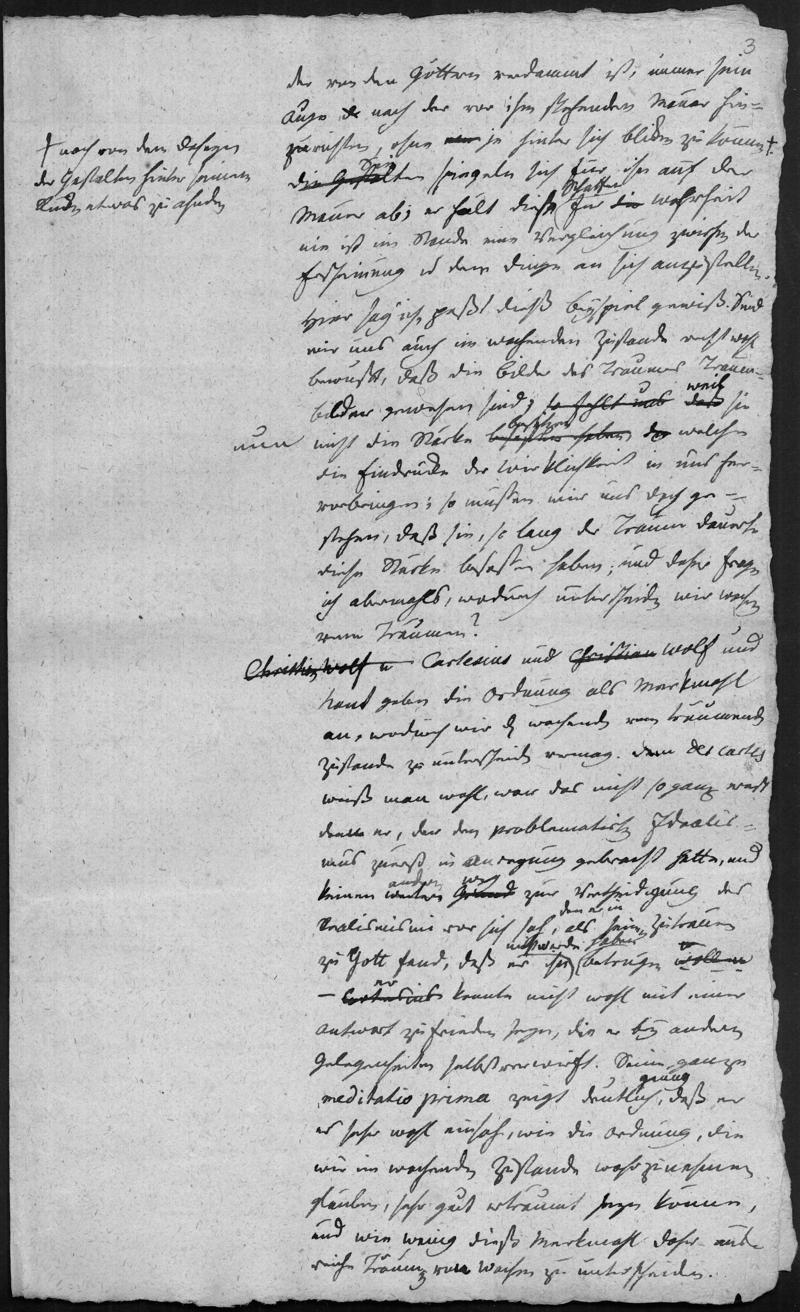 3
der von den Göttern verdammt ist, immer sein
Auge de nach der vor ihm stehenden Mauer hin=
zurichten, ohne je hinter sich bliken zu können †.
† noch von dem Daseyn
der Gestalten hinter seinem
Rüken etwas zu ahnden
die Gestalten spiegeln sich für ihn auf der
Mauer ab; er hält diese Schatten für die Wahrheit
nie ist im Stande eine Vergleichung zwischen der
Erscheinung u dem Dinge an sich anzustellen.
Hier sag' ich, paßt dieß Beyspiel gewiß. Sind
wir uns auch im wachenden Zustande recht wohl
bewußt, daß die Bilder des Traumes Traum=
bilder gewesen sind; so fehlt uns daß weil sie
nun nicht die Stärke besessen haben besitzen welche
die Eindrüke der Wirklichkeit in uns her=
vorbringen; so müssen wir uns doch ge=
stehen, daß sie, so lang der Traum dauerte
diese Stärke besessen haben; und daher frage
ich abermahls, wodurch unterscheiden wir wachen
vom Träumen?
Christian Wolf u Cartesius und Christian Wolf und
Kant geben die Ordnung als Merkmahl
an, wodurch wir d wachenden vom träumenden
Zustande zu unterscheiden vermag. Dem Des Cartes
weiß man wohl, war das nicht so ganz ernst
denn er, der den problematisch Idealis=
mus zuerst in Anregung gebracht hatte, und
keinen weitern andern Grund Weg zur Vertheidigung des
Realismus vor sich sah, als den er in seinem Zutrauen
zu Gott fand, daß er ihn nicht werde betrügen haben wollen
– Cartesius er konnte nicht wohl mit einer
Antwort zufrieden seyn, die er bey andern
Gelegenheiten selbst verwirft. Seine ganze
meditatio prima zeigt deutlich genug, daß er
es sehr wohl einsah, wie die Ordnung, die
wir im wachenden Zustande wahrzunehmen
glauben, sehr gut erträumt seyn könne,
und wie wenig dieses Merkmahl daher aus=
reiche Träume vom Wachen zu unterscheiden.